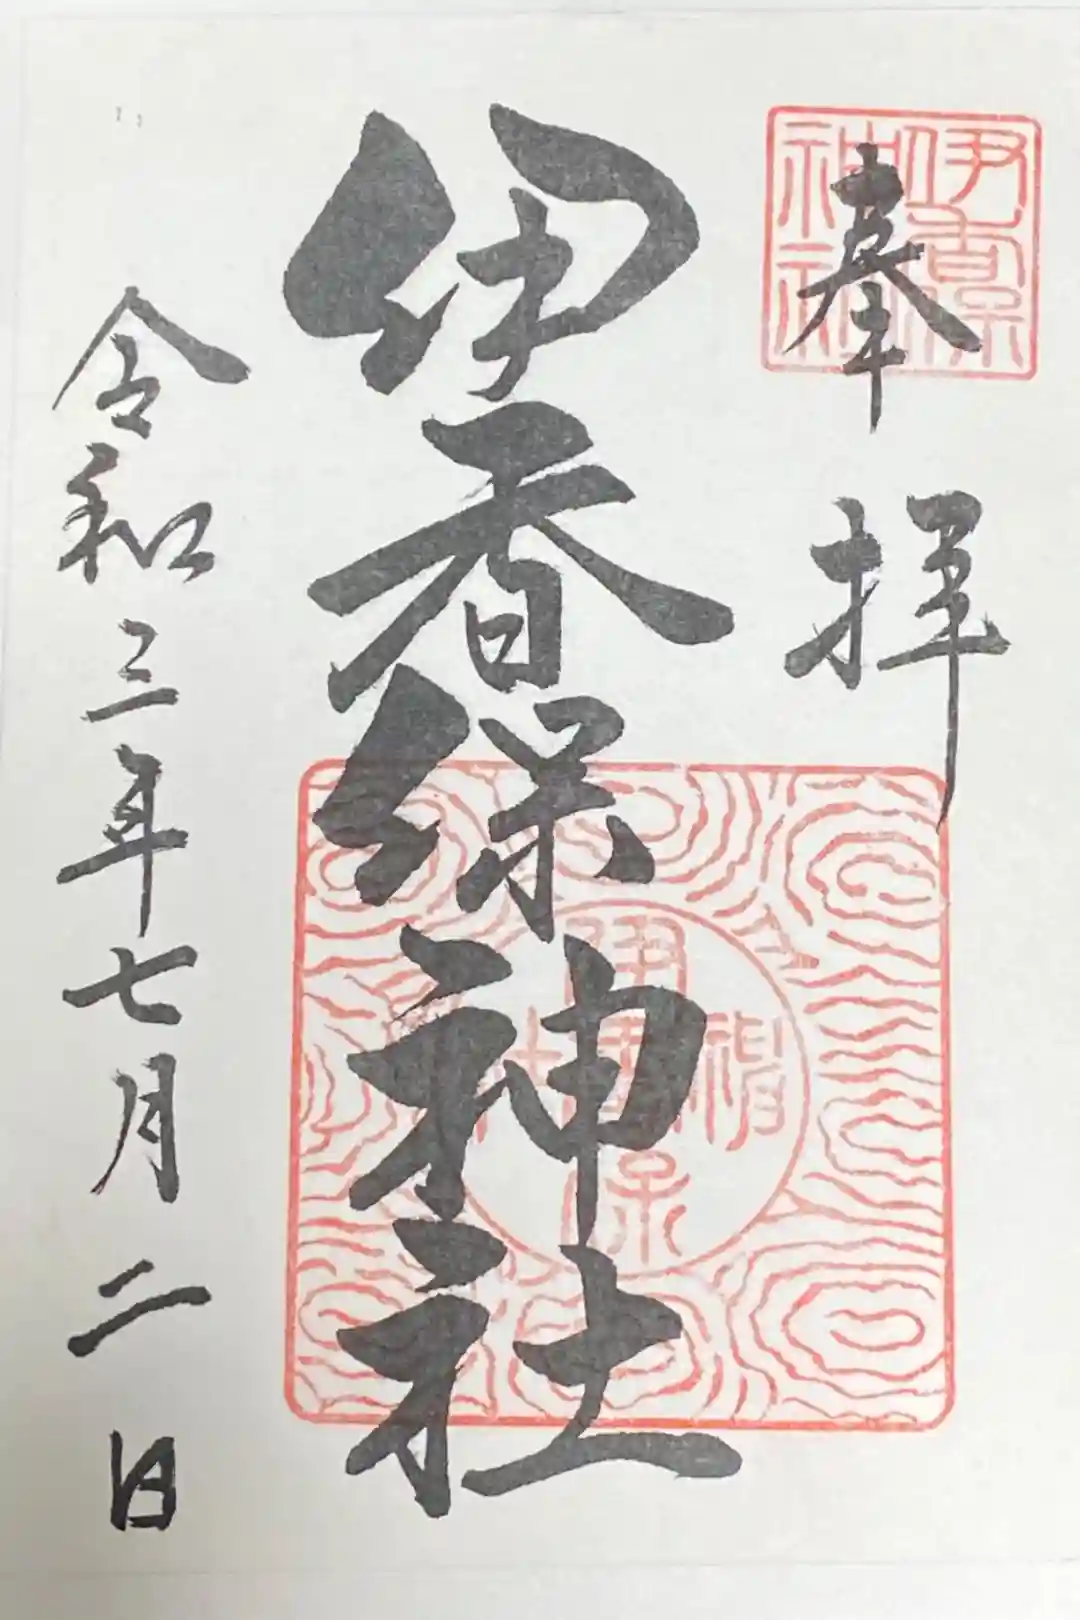 奉拝
伊香保
神社
伊香保神社
伊香保
神社
令和三年七月二日